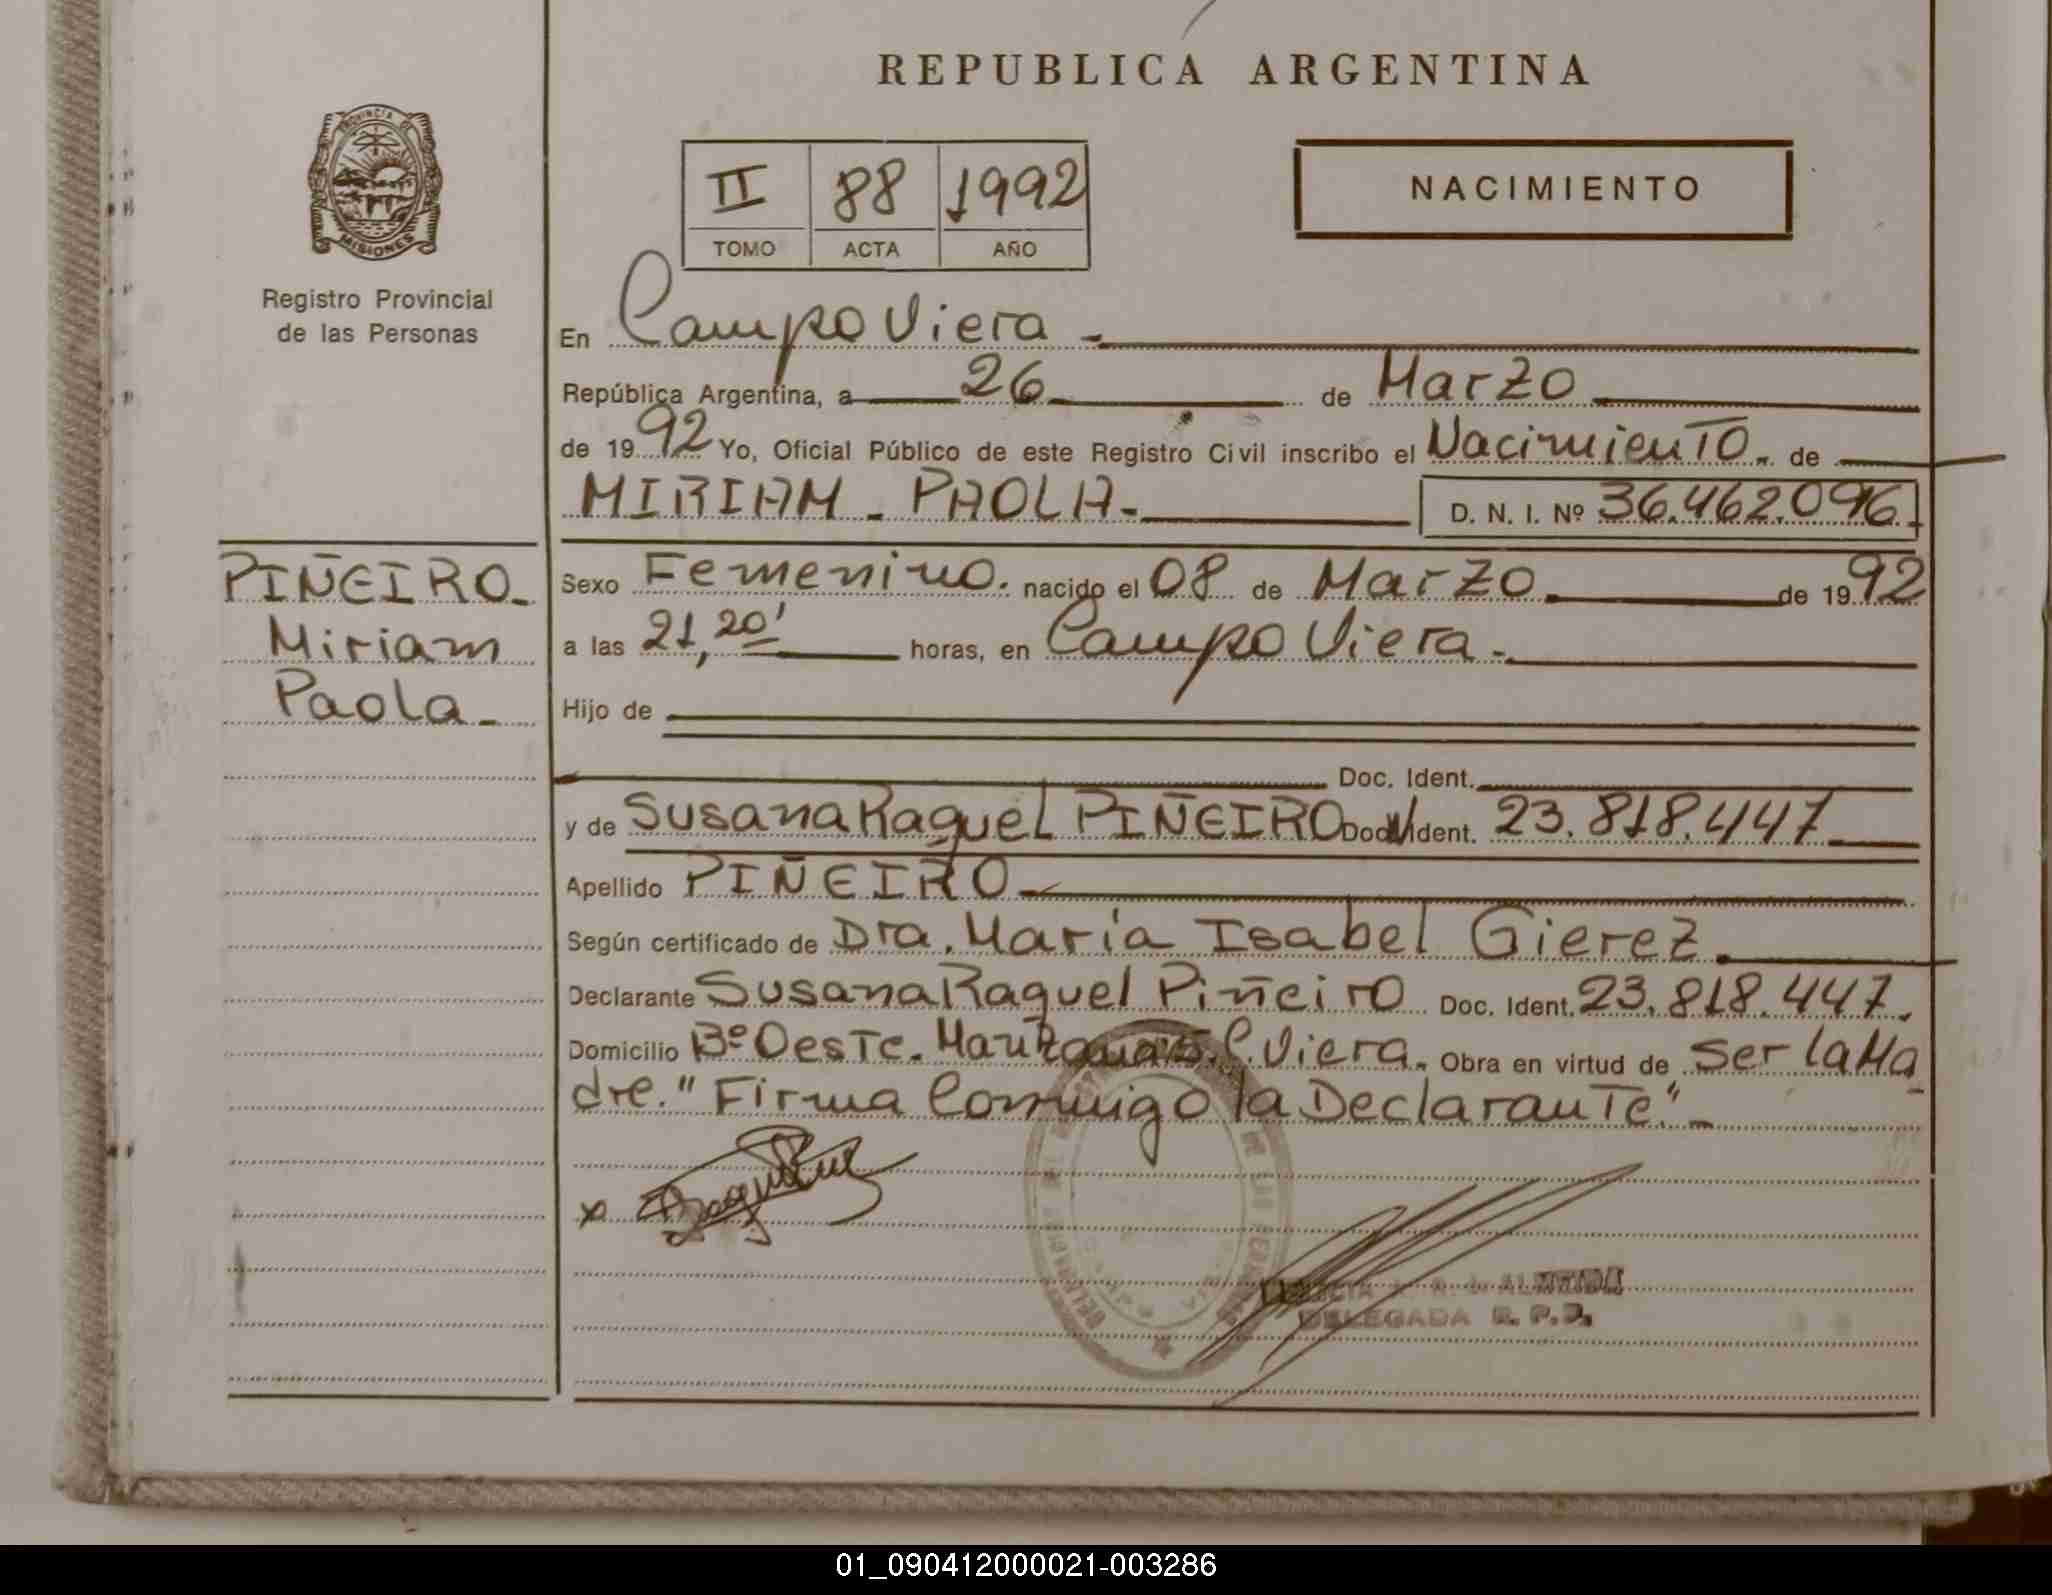 REPUBLICA ARGENTINA
PROVINCIA DE
MISIONES
Registro Provincial
de las Personas
II 88 1992
TOMO ACTA AÑO
NACIMIENTO
En Campo Viera -
República Argentina, a 26 de Marzo
de 1992 Yo, Oficial Público de este Registro Civil inscribo el Nacimiento. de
MIRIAM - PAOLA - D. N. I. Nº 36.462.096.
PIÑEIRO -
Miriam
Paola -
Sexo Femenino. nacido el 08 de Marzo de 1992
a las 21,20' horas, en Campo Viera -
Hijo de
Doc. Ident.
y de Susana Raquel PIÑEIRO Doc. Ident. 23.818.447
Apellido PIÑEIRO
Según certificado de Dra. María Isabel Gierez
Declarante Susana Raquel Piñeiro Doc. Ident. 23.818.447.
Domicilio Bº Oeste. Manzana 5. C. Viera. Obra en virtud de Ser la Ma
dre. "Firma Conmigo la Declarante". -
x
ALMEIDA
DELEGADA R. P. P.
01_090412000021-003286